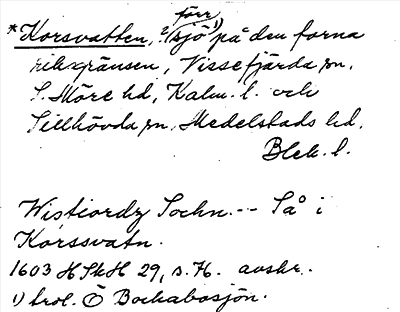 förr
*Korsvatten, ?/sjö 1) på den forna
riksgränsen, Vissefjärda sn,
S. Möre hd, Kalm. l. och
Sillhövda sn, Medelstads hd,
Blek. l.
Wistiordz Sochn. -- Så i
Korssvatn.
1603 HSkH 29, s. 76. avskr.
1) trol. Ö Bockabosjön.